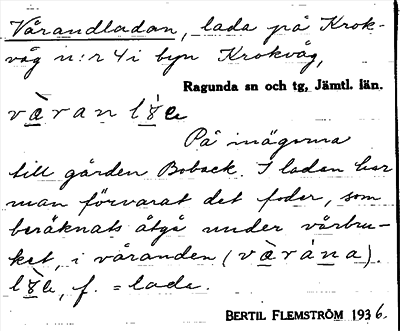 Vårandladan, lada på Krok-
våg n:r 4 i byn Krokvåg,
Ragunda sn och tg, Jämtl. län.
På inägorna
till gården Boback. I ladan har
man förvarat det foder, som
beräknats åtgå under vårbru-
ket, i våranden (
f. = lada.
BERTIL FLEMSTRÖM 1936.